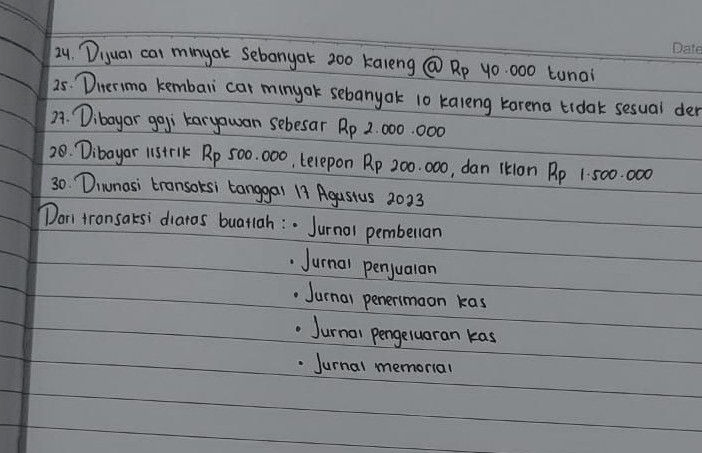 Date
24. Dijual cat minyak sebanyak 200 kaleng @ Rp 40.000 tunai
25. Diterima kembali cat minyak sebanyak 10 kaleng karena tidak sesuai der
27. Dibayar gaji karyawan sebesar Rp 2.000.000
28. Dibayar listrik Rp 500.000, telepon Rp 200.000, dan iklan Rp 1.500.000
30. Dilunasi transaksi tanggal 17 Agustus 2023
Dari transaksi diatas buatlah : • Jurnal pembelian
• Jurnal penjualan
• Jurnal penerimaan kas
• Jurnal pengeluaran kas
• Jurnal memorial